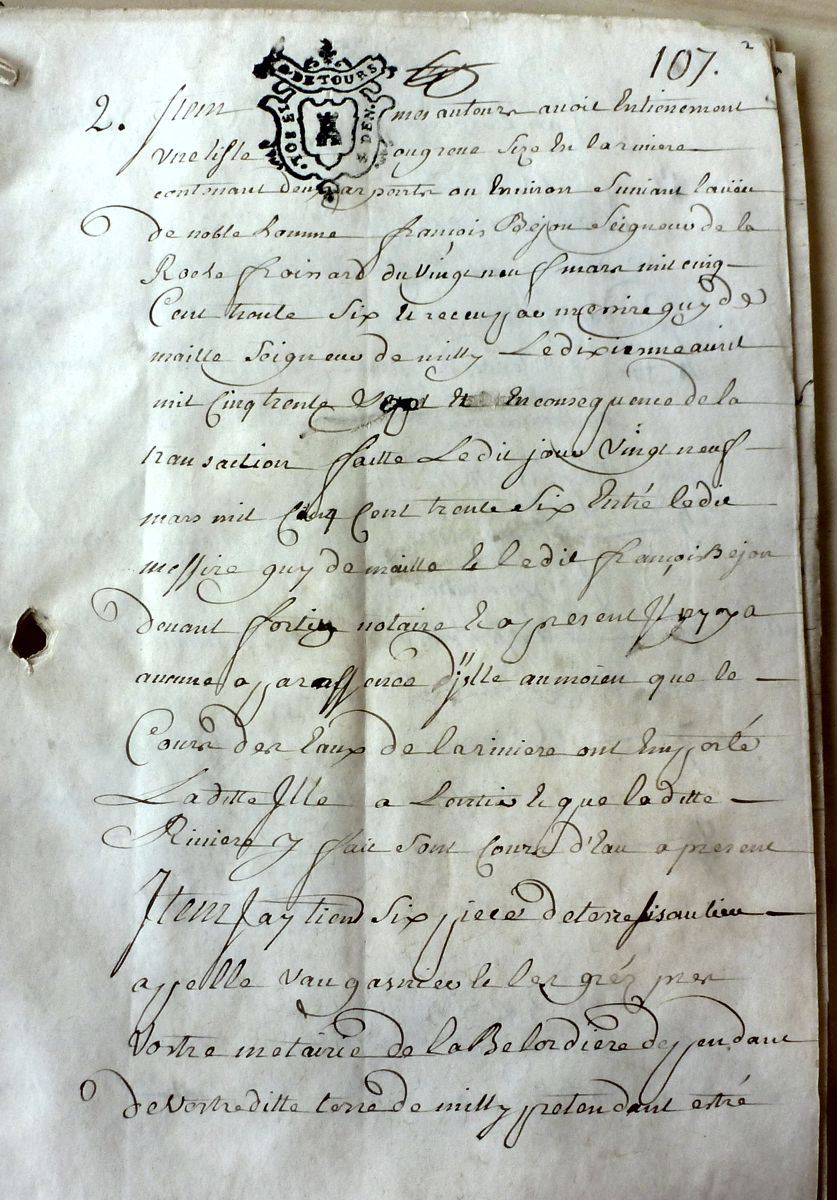 107.
2
G. DE TOURS
2. Item mes auteurs avoit entienement
une isle ou groue size en la riviere
contenant deux arpents ou environ suivant laveu
de noble homme françois Bejou Seigneur de la
Roche froissard du vingt neuf mars mil cinq
Cent trente six et receu par messire guy de
maille Seigneur de milly Le dixienme avril
mil Cinq trente et En consequence de la
transaction faitte Ledit jour vingt neuf
mars mil Cinq Cent trente six Entré ledit
messire guy de maille et ledit françois Bejou
devant notaire et a present Il ny a
aucune apparence d'jslle au moien que le
Cours des Eaux de la riviere ont Emporté
Laditte Jlle a Lentier et que laditte
Riviere y fait sont Cours d'Eau a present
Item Jay tiend six piece de terre sis au lieu
appelle vaugasnier et les grés pres
vostre métairie de la Belordiere deppendant
de vostreditte terre de milly pretendant estré